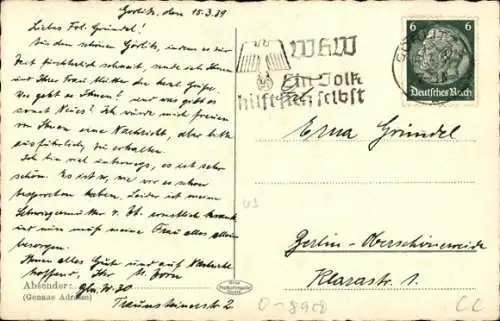 Görlitz, den 15.3.39
Liebes Frl. Gründel!
Aus dem schönen Görlitz, in dem es zur
Zeit fürchterlich schneit, sende ich Ihnen
und Ihrer Frau Mutter die herzl. Grüße.
Wie geht es Ihnen? und was gibt es
sonst Neues? Ich würde mich freuen
von Ihnen eine Nachricht, aber bitte
ausführlich, zu erhalten.
Ich bin viel unterwegs, es ist sehr
schön. Es ist so, wie wir es schon
besprochen haben. Leider ist meine
Schwiegermutter z. Zt. ernstlich krank
und nun muß meine Frau alles allein
besorgen.
Ihnen alles Gute und auf Nachricht
hoffend, Ihr
Absender:
(Genaue Adresse)
Traunsteinerstr. 2
WHW
Ein Volk
hilft sich selbst
6 6
Deutsches Reich
Erna Gründel
Berlin-Oberschöneweide
Klarastr. 1
0-8900
CC